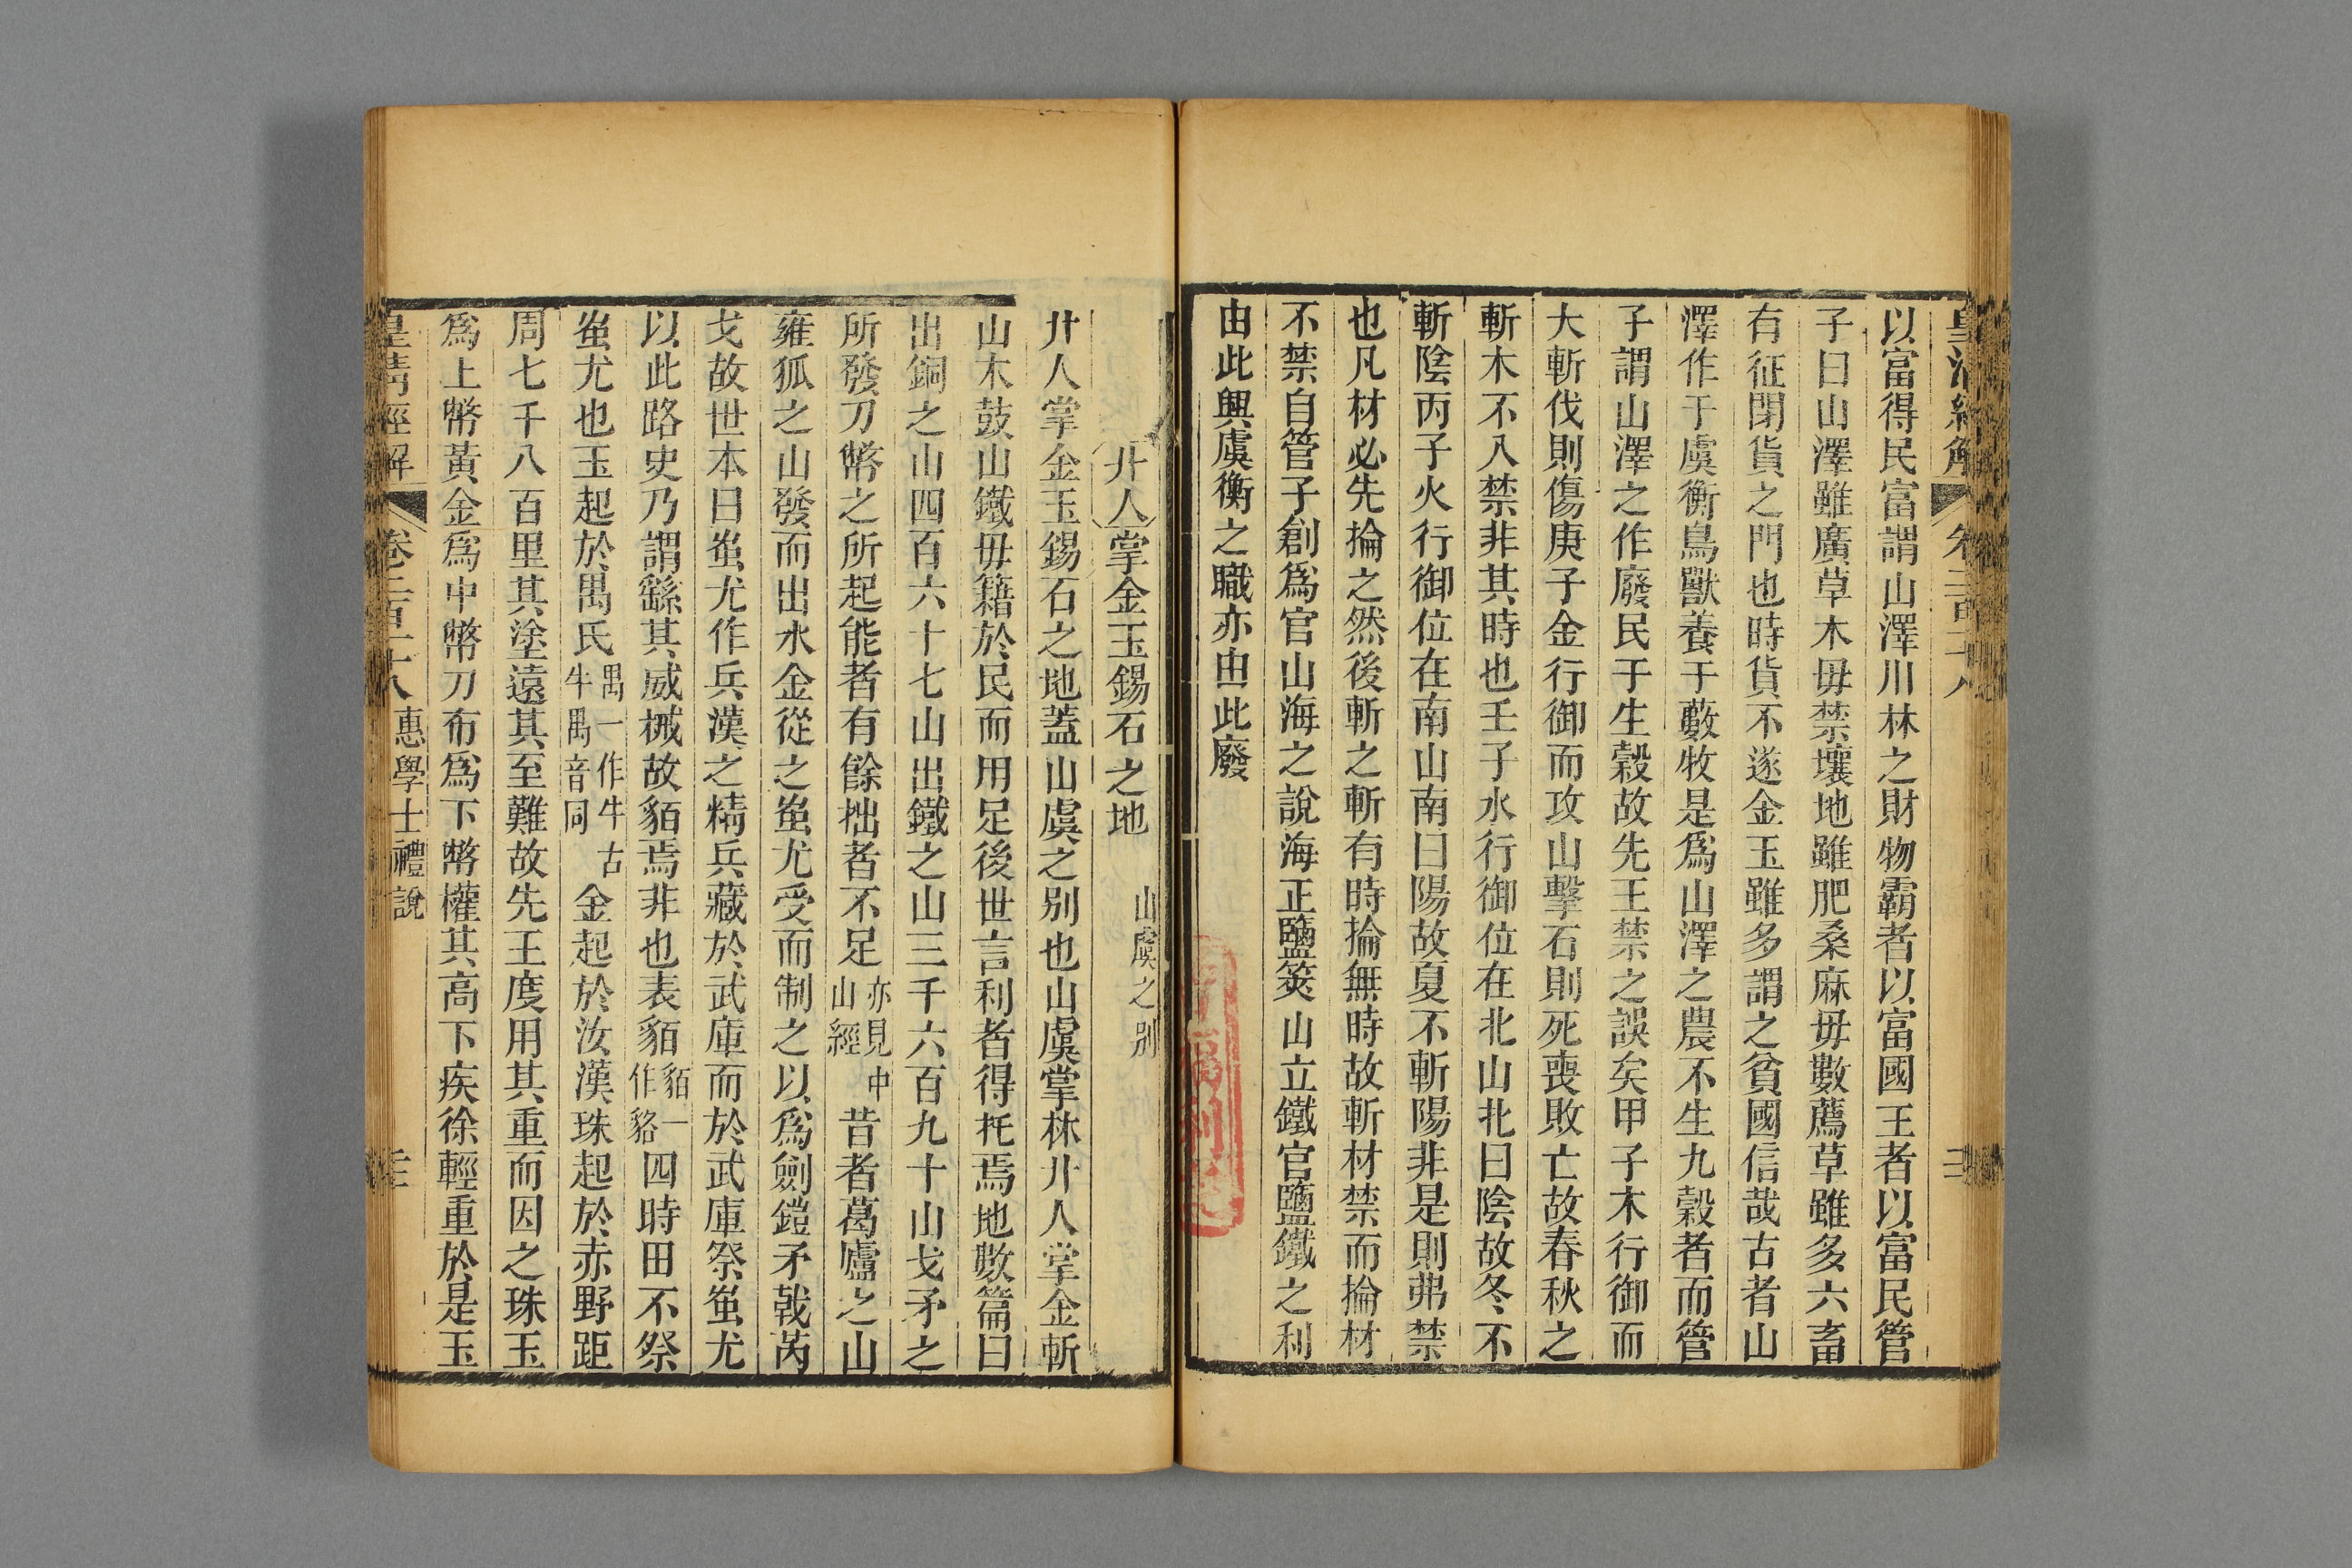 以富得民富謂山澤川林之財物霸者以富國王者以富民管
子曰山澤雖廣草木毋禁壤地雖肥桑麻毋數薦草雖多六畜
有征閉貨之門也時貨不遂金玉雖多謂之貧國信哉古者山
澤作于虞衡鳥獸養于藪牧是爲山澤之農不生九穀者而管
子謂山澤之作廢民于生穀故先王禁之誤矣甲子木行御而
大斬伐則傷庚子金行御而攻山擊石則死喪敗亡故春秋之
斬木不入禁非其時也壬子水行御位在北山北曰陰故冬不
斬陰丙子火行御位在南山南曰陽故夏不斬陽非是則弗禁
也凡材必先掄之然後斬之斬有時掄無時故斬材禁而掄材
不禁自管子創爲官山海之說海正鹽筴山立鐵官鹽鐵之利
由此興虞衡之職亦由此廢
卝人掌金玉錫石之地 山虞之別
卝人掌金玉錫石之地蓋山虞之别也山虞掌林卝人掌金斬
山木鼓山鐵毋籍於民而用足後世言利者得托焉地數篇曰
出銅之山四百六十七山出鐵之山三千六百九十山戈矛之
所發刀幣之所起能者有餘拙者不足亦見中山經昔者葛廬之山
雍狐之山發而出水金從之蚩尤受而制之以爲劍鎧矛戟芮
戈故世本曰蚩尤作兵漢之精兵藏於武庫而於武庫祭蚩尤
以此路史乃謂繇其威械故貊焉非也表貊貊一作貉四時田不祭
蚩尤也玉起於禺氏禺一作牛古牛禺音同金起於汝漢珠起於赤野距
周七千八百里其塗遠其至難故先王度用其重而因之珠玉
爲上幣黃金爲中幣刀布爲下幣權其高下疾徐輕重於是玉
皇清經解 卷二百十八 惠學士禮說